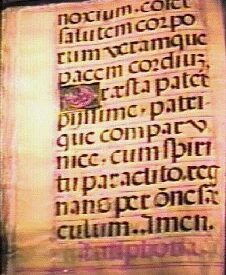 noxium, colet
salutem corpo
rum veramque
pacem cordiuʒ.
Præsta pater
pijssime, patri
que compar v
nice, cum spiri
tu paraclito, reg
nans per õne sæ
culum. Amen.